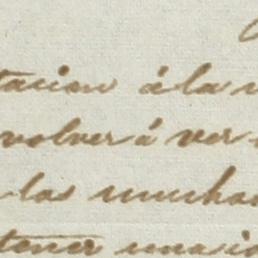 tacion á la
volver á ver
las muchas
tener una